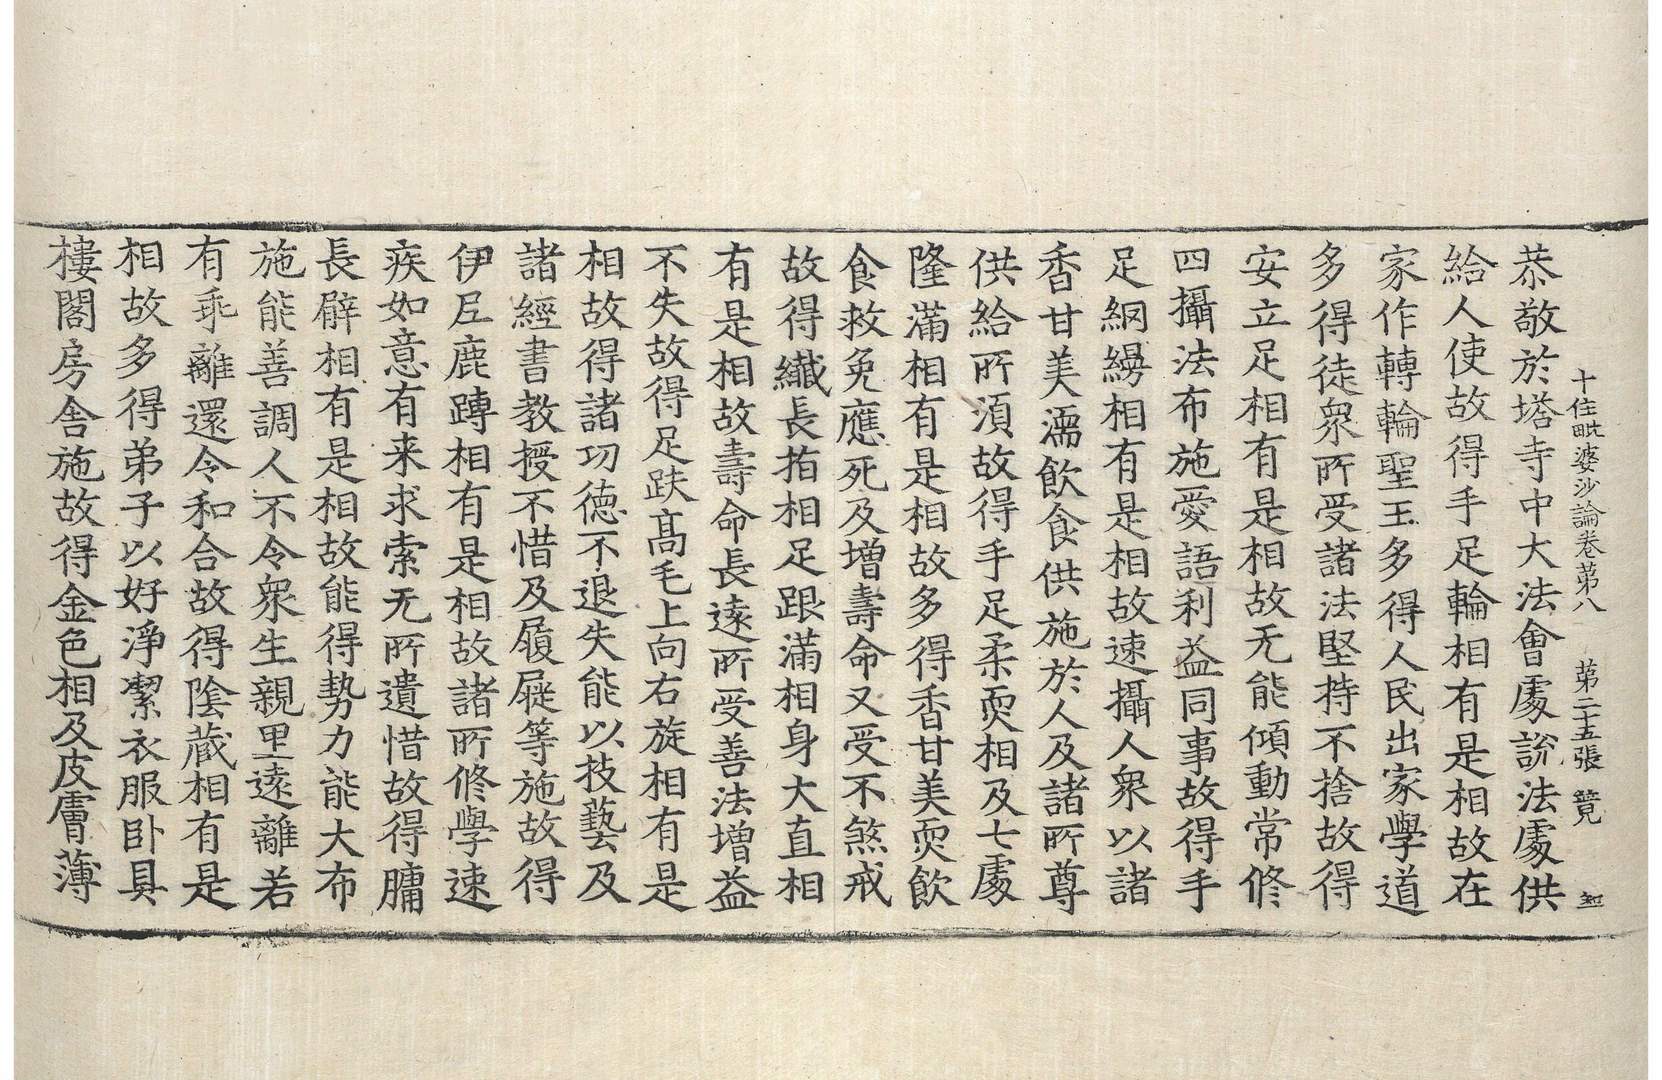 十住毗婆沙論卷苐八　苐二十五張　竟
恭敬於塔寺中大法會處說法處供
給人使故得手足輪相有是相故在
家作轉輪聖王多得人民出家學道
多得徒衆所受諸法堅持不捨故得
安立足相有是相故无能傾動常修
四攝法布施愛語利益同事故得手
足網縵相有是相故速攝人衆以諸
香甘美濡飮食供施於人及諸所尊
供給所湏故得手足柔耎相及七處
隆滿相有是相故多得香甘美耎飮
食救免應死及增壽命又受不煞戒
故得纖長指相足跟滿相身大直相
有是相故壽命長遠所受善法增益
不失故得足趺髙毛上向右旋相有是
相故得諸功德不退失能以技藝及
諸經書教授不惜及履屣等施故得
伊尼鹿蹲相有是相故諸所修學速
疾如意有来求索无所遺惜故得𦟛
長臂相有是相故能得勢力能大布
施能善調人不令衆生親里遠離若
有乖離還令和合故得陰藏相有是
相故多得弟子以好淨潔衣服卧具
樓閣房舍施故得金色相及皮膚薄